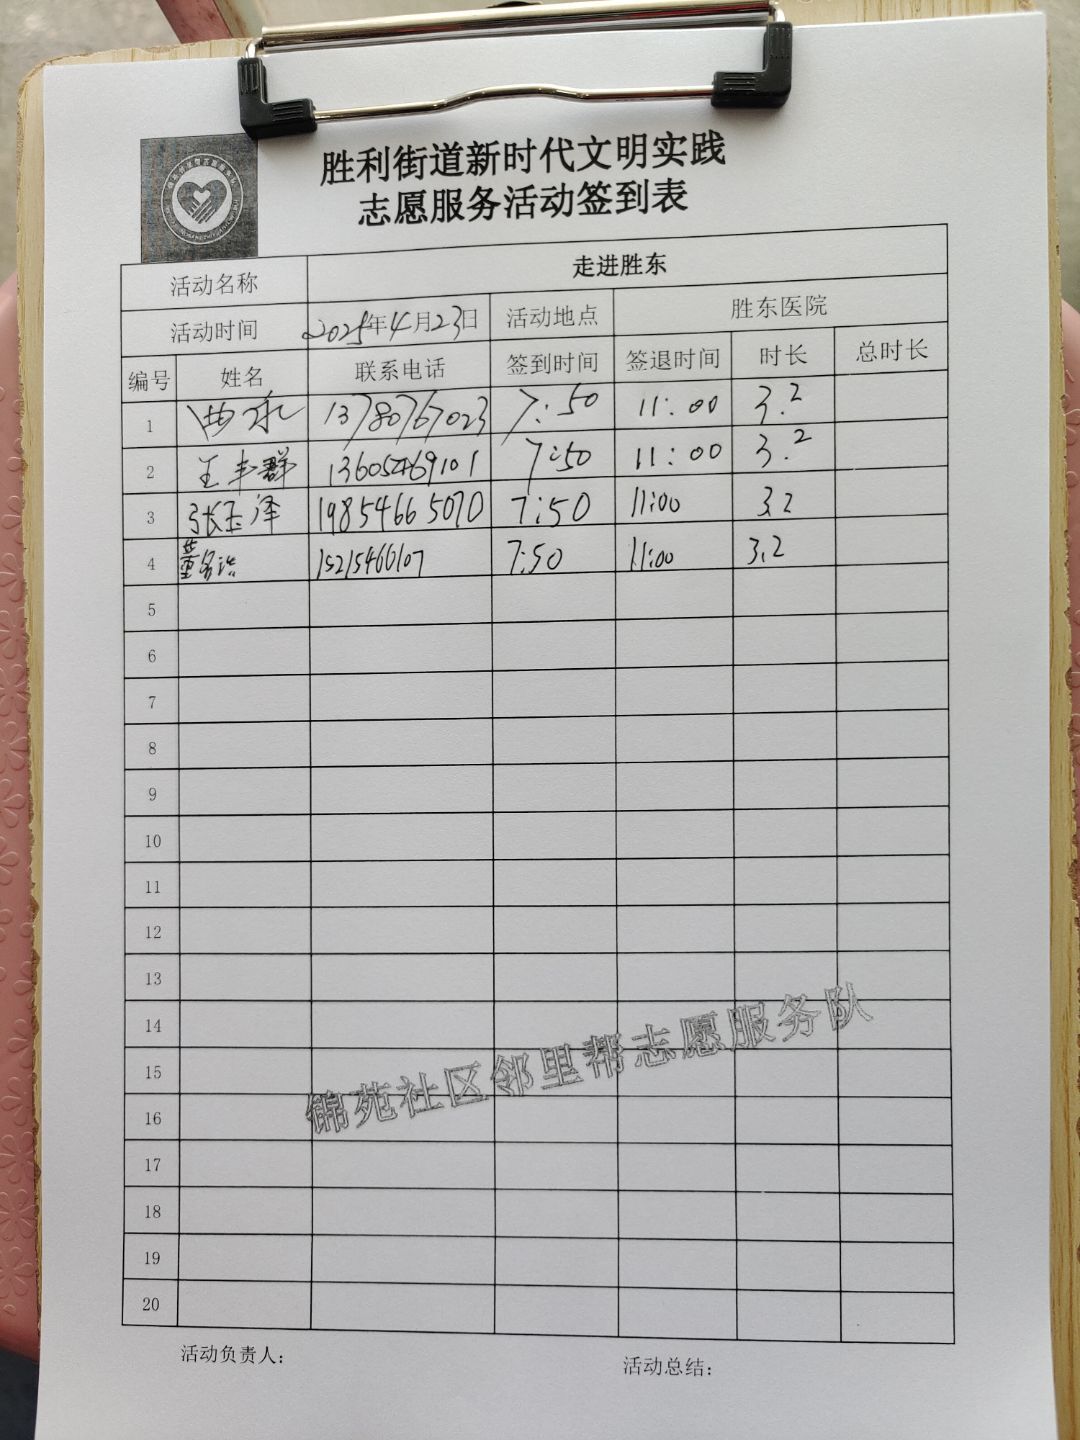 胜利街道新时代文明实践
志愿服务活动签到表
活动名称 走进胜东
活动时间 2025年4月23日 活动地点 胜东医院
编号 姓名 联系电话 签到时间 签退时间 时长 总时长
1 曲永 13780767023 7:50 11:00 3.2
2 王丰群 13605469101 7:50 11:00 3.2
3 张玉泽 19854665070 7:50 11:00 3.2
4 董 15215466107 7:50 11:00 3.2
5
6
7
8
9
10
11
12
13
14
15
16
17
18
19
20
锦苑社区邻里帮志愿服务队
活动负责人: 活动总结: